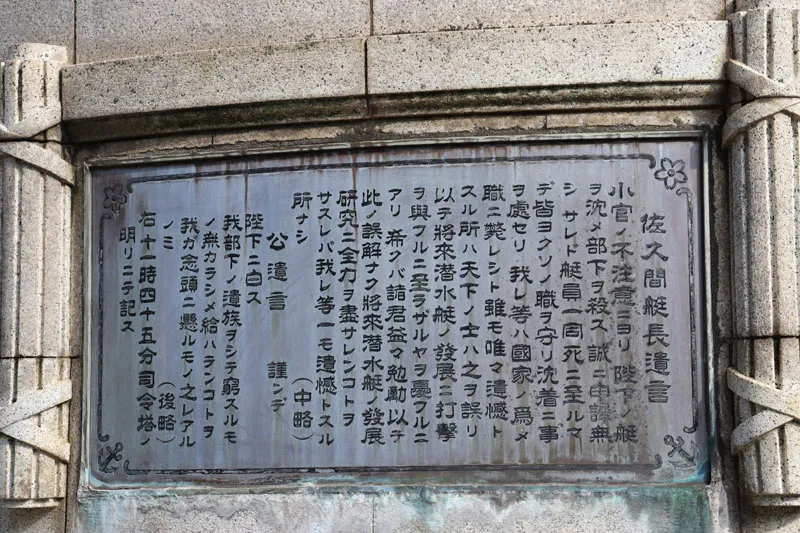 佐久間艇長遺言
小官ノ不注意ニヨリ 陛下ノ艇
ヲ沈メ部下ヲ殺ス 誠ニ申譯無
シ サレド艇員一同死ニ至ルマ
デ皆ヨクソノ職ヲ守リ沈着ニ事
ヲ處セリ 我レ等ハ國家ノ爲メ
職ニ斃レシト雖モ唯々遺憾ト
スル所ハ天下ノ士ハ之ヲ誤リ
以テ將來潜水艇ノ發展ニ打撃
ヲ與フルニ至ラザルヤヲ憂フルニ
アリ 希クバ諸君益々勉勵以テ
此ノ誤解ナク將來潜水艇ノ發展
研究ニ全力ヲ盡サレンコトヲ
サスレバ我レ等一モ遺憾トスル
所ナシ (中略)
公遺言 謹ンデ
陛下ニ白ス
我部下ノ遺族ヲシテ窮スルモ
ノ無カラシメ給ハランコトヲ
我ガ念頭ニ懸ルモノ之レアル
ノミ (後略)
右十一時四十五分司令塔ノ
明リニテ記ス